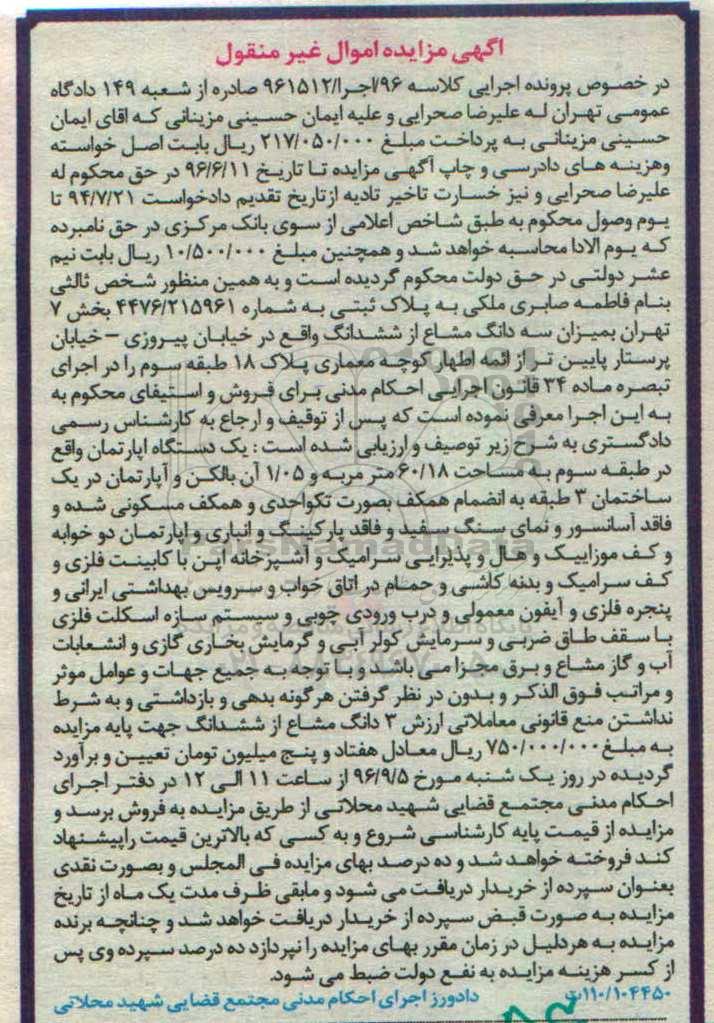 آگهی مزایده اموال غیر منقول
در خصوص پرونده اجرایی کلاسه ۹۶/اجرا/۹۶۱۵۱۲ صادره از شعبه ۱۴۹ دادگاه
عمومی تهران له علیرضا صحرایی و علیه ایمان حسینی مزینانی که اقای ایمان
حسینی مزینانی به پرداخت مبلغ ۲۱۷/۰۵۰/۰۰۰ ریال بابت اصل خواسته
وهزینه های دادرسی و چاپ آگهی مزایده تا تاریخ ۹۶/۶/۱۱ در حق محکوم له
علیرضا صحرایی و نیز خسارت تاخیر تادیه ازتاریخ تقدیم دادخواست ۹۴/۷/۲۱ تا
یوم وصول محکوم به طبق شاخص اعلامی از سوی بانک مرکزی در حق نامبرده
که یوم الادا محاسبه خواهد شد و همچنین مبلغ ۱۰/۵۰۰/۰۰۰ ریال بابت نیم
عشر دولتی در حق دولت محکوم گردیده است و به همین منظور شخص ثالثی
بنام فاطمه صابری ملکی به پلاک ثبتی به شماره ۴۴۷۶/۲۱۵۹۶۱ بخش ۷
تهران بمیزان سه دانگ مشاع از ششدانگ واقع در خیابان پیروزی – خیابان
پرستار پایین تر از ائمه اطهار کوچه معماری پلاک ۱۸ طبقه سوم را در اجرای
تبصره ماده ۳۴ قانون اجرایی احکام مدنی برای فروش و استیفای محکوم به
به این اجرا معرفی نموده است که پس از توقیف و ارجاع به کارشناس رسمی
دادگستری به شرح زیر توصیف و ارزیابی شده است : یک دستگاه اپارتمان واقع
در طبقه سوم به مساحت ۶۰/۱۸ متر مربه و ۱/۰۵ آن بالکن و آپارتمان در یک
ساختمان ۳ طبقه به انضمام همکف بصورت تکواحدی و همکف مسکونی شده و
فاقد آسانسور و نمای سنگ سفید و فاقد پارکینگ و انباری و اپارتمان دو خوابه
و کف موزاییک و هال و پذیرایی سرامیک و آشپزخانه اپن با کابینت فلزی و
کف سرامیک و بدنه کاشی و حمام در اتاق خواب و سرویس بهداشتی ایرانی و
پنجره فلزی و آیفون معمولی و درب ورودی چوبی و سیستم سازه اسکلت فلزی
با سقف طاق ضربی و سرمایش کولر آبی و گرمایش بخاری گازی و انشعابات
آب و گاز مشاع و برق مجزا می باشد و با توجه به جمیع جهات و عوامل موثر
و مراتب فوق الذکر و بدون در نظر گرفتن هرگونه بدهی و بازداشتی و به شرط
نداشتن منع قانونی معاملاتی ارزش ۳ دانگ مشاع از ششدانگ جهت پایه مزایده
به مبلغ ۷۵۰/۰۰۰/۰۰۰ ریال معادل هفتاد و پنج میلیون تومان تعیین و برآورد
گردیده در روز یک شنبه مورخ ۹۶/۹/۵ از ساعت ۱۱ الی ۱۲ در دفتر اجرای
احکام مدنی مجتمع قضایی شهید محلاتی از طریق مزایده به فروش برسد و
مزایده از قیمت پایه کارشناسی شروع و به کسی که بالاترین قیمت راپیشنهاد
کند فروخته خواهد شد و ده درصد بهای مزایده فی المجلس و بصورت نقدی
بعنوان سپرده از خریدار دریافت می شود و مابقی ظرف مدت یک ماه از تاریخ
مزایده به صورت قبض سپرده از خریدار دریافت خواهد شد و چنانچه برنده
مزایده به هردلیل در زمان مقرر بهای مزایده را نپردازد ده درصد سپرده وی پس
از کسر هزینه مزایده به نفع دولت ضبط می شود.
۱۱۰/۱۰۴۴۵۰/ت دادورز اجرای احکام مدنی مجتمع قضایی شهید محلاتی